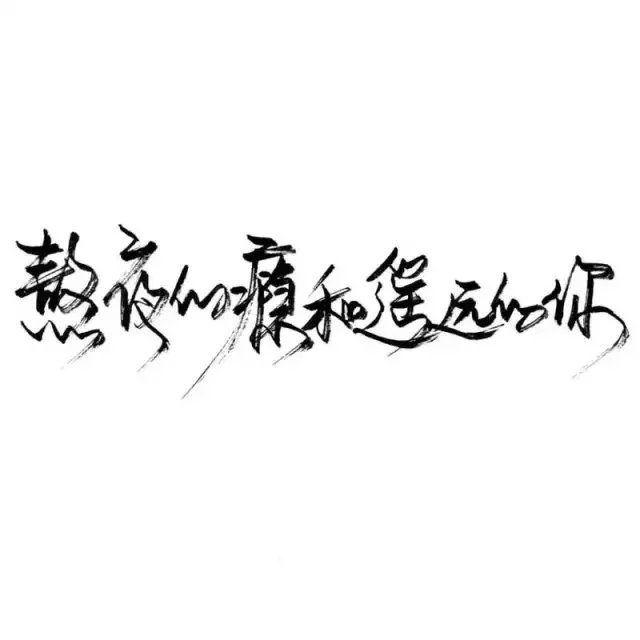 熬夜的瘾和遥远的你